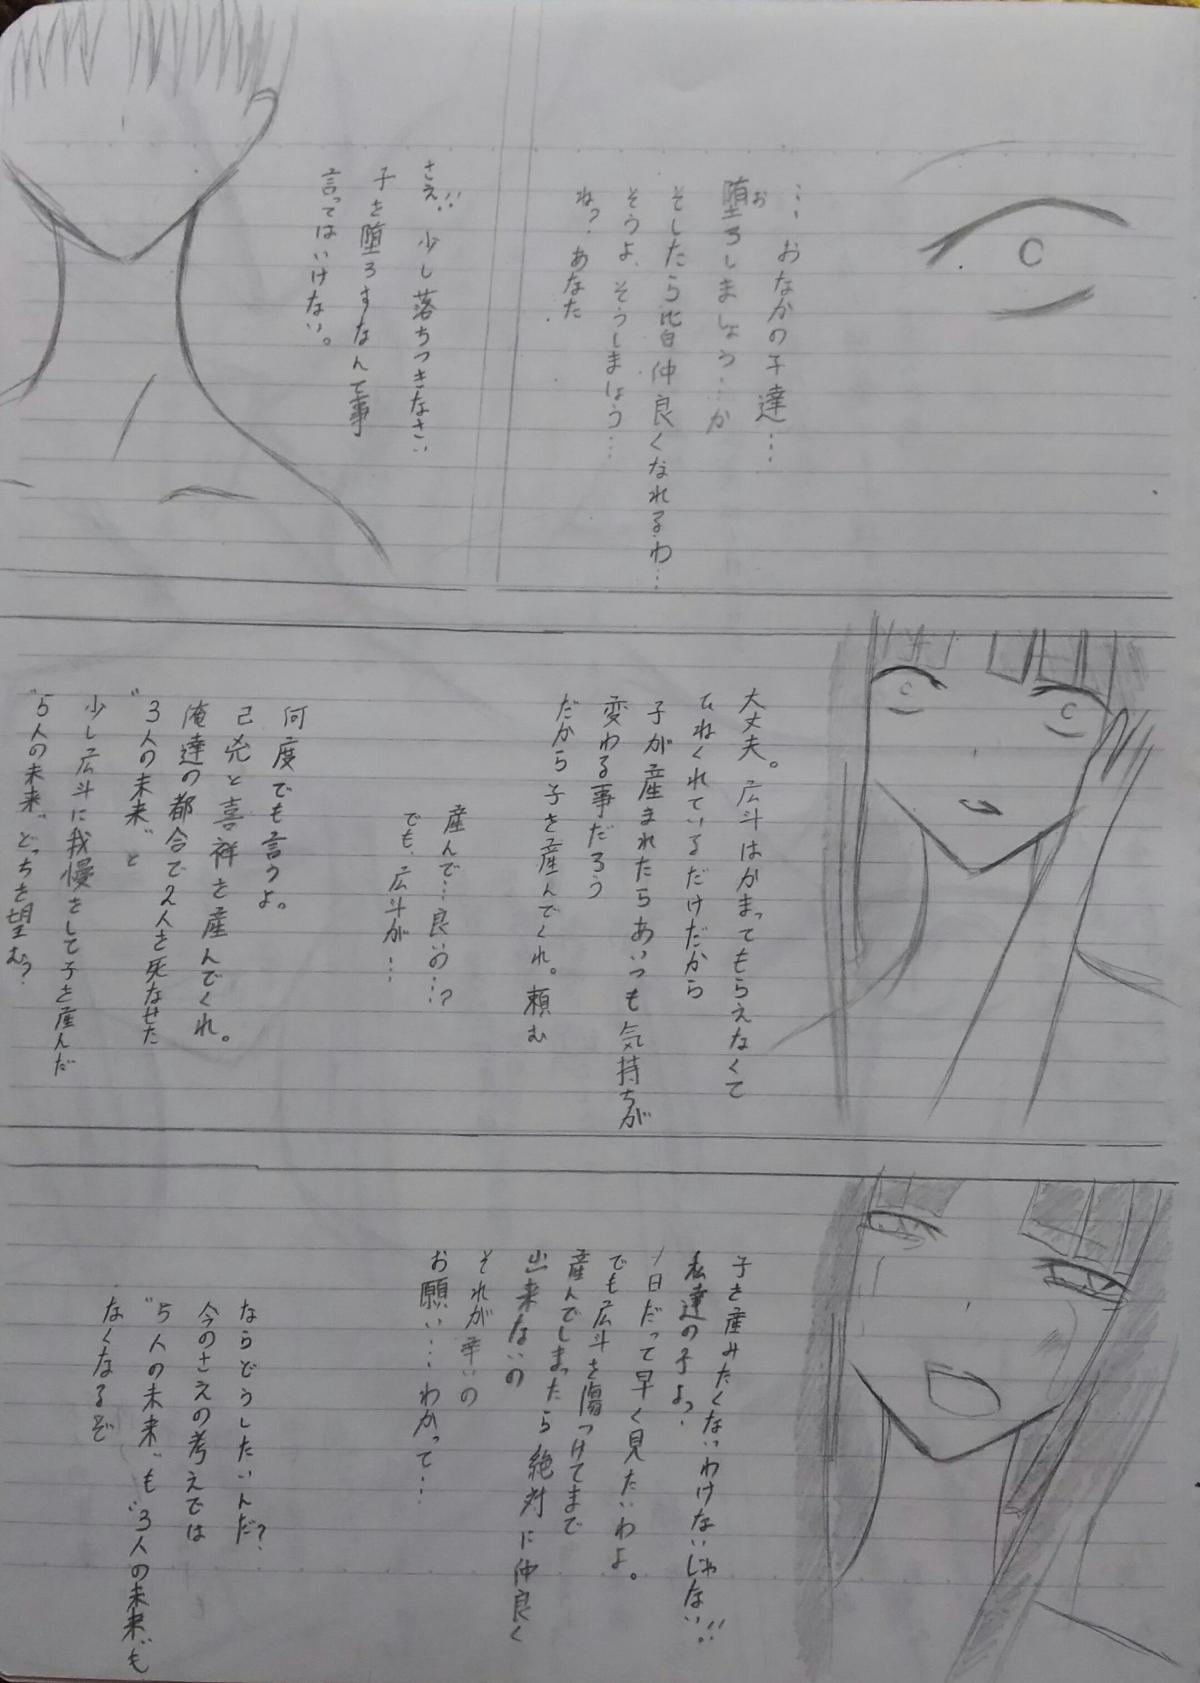 … おなかの子達…
堕ろしましょう…か
お
そしたら皆仲良くなれるわ…
そうよ、そうしまはう…
ね？あなた
さえ!! 少し落ちつきなさい
子を堕ろすなんて事
言ってはいけない。
大丈夫。広斗はかまってもらえなくて
ひねくれているだけだから
子が産まれたらあいつも気持ちが
変わる事だろう
だから子を産んでくれ。頼む
産んで…良いの…？
でも、広斗が…
何度でも言うよ。
己兇と喜祥を産んでくれ。
俺達の都合で2人を死なせた
"3人の未来"と
少し広斗に我慢をして子を産んだ
"5人の未来"どっちを望む？
子を産みたくないわけないじゃない!!
私達の子よっ
1日だって早く見たいわよ。
でも広斗を傷つけてまで
産んでしまったら絶対に仲良く
出来ないの
それが辛いの
お願い…わかって…
ならどうしたいんだ？
今のさえの考えでは
"5人の未来"も"3人の未来"も
なくなるぞ